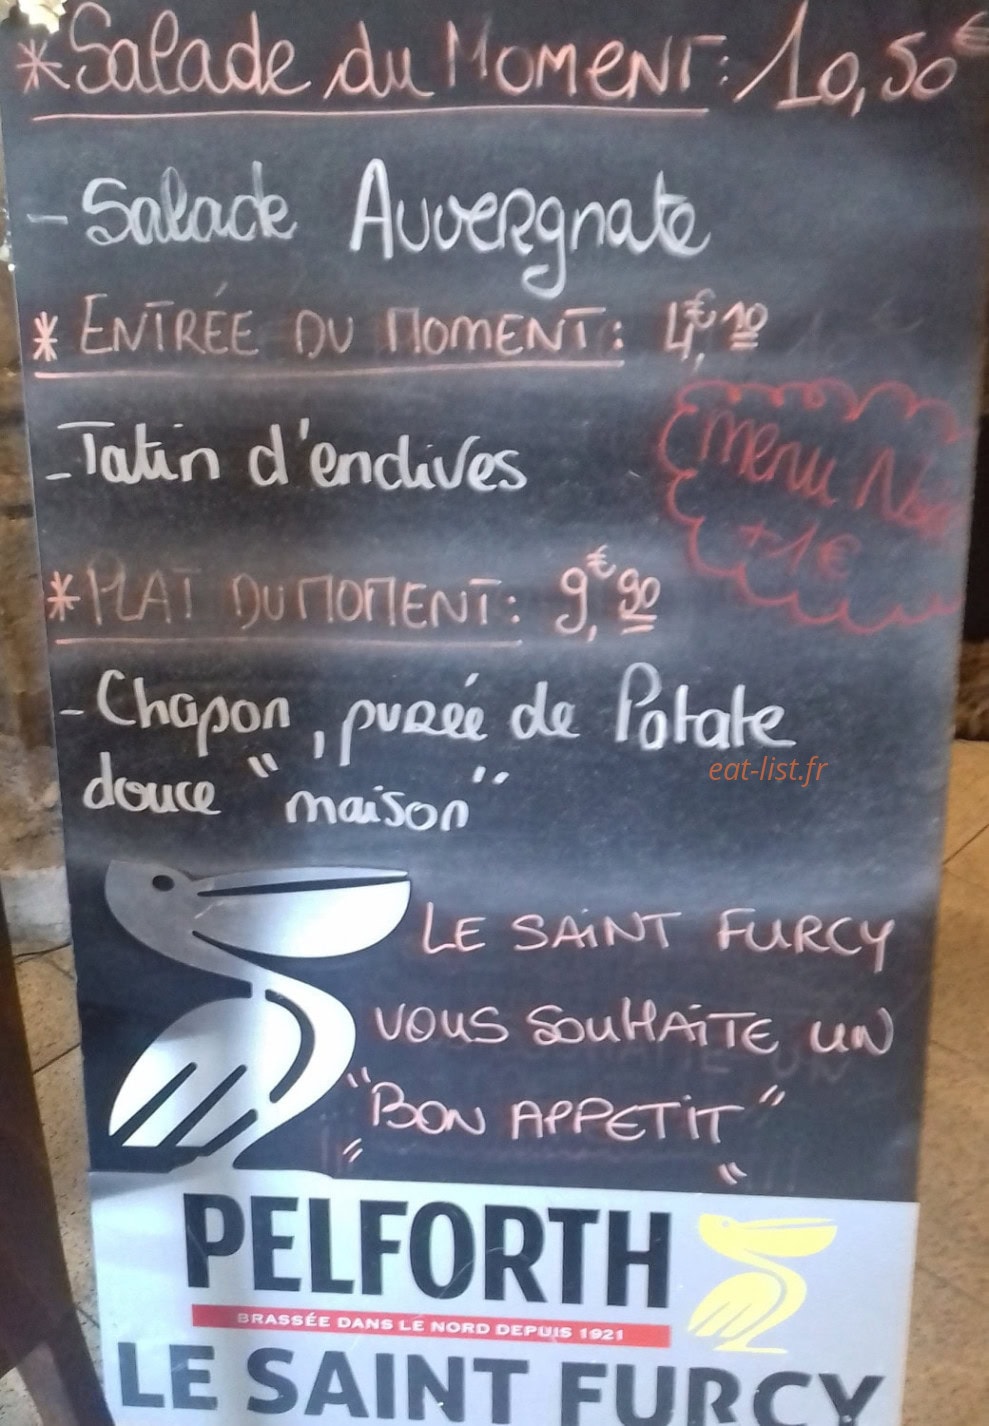 *Salade du Moment: 10,50€
- Salade Auvergnate
* ENTRÉE DU MOMENT: 4,€10
- Tatin d'endives
Menu Noël
+1€
*PLAT DU MOMENT: 9,€90
- Chapon, purée de Patate
douce "maison"
eat-list.fr
LE SAiNT FURCY
VOUS SOUHAiTE UN
"BON APPETiT"
PELFORTH
BRASSÉE DANS LE NORD DEPUIS 1921
LE SAINT FURCY